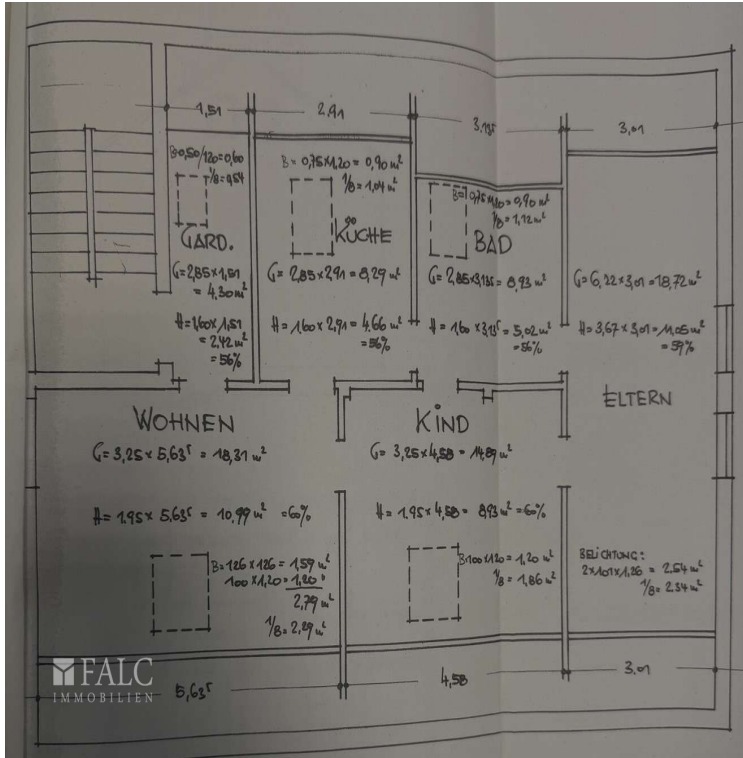 1,51
2,91
3,13⁵
3,01
B=0,50/120=0,60
1/8=0,54
GARD.
G=2,85×1,51
= 4,30m²
H=1,60×1,51
= 2,42m²
= 56%
B = 0,75×1,20 = 0,90 m²
1/8 = 1,04 m²
KÜCHE
G = 2,85×2,91 = 8,29 m²
H = 1,60 × 2,91 = 4.66 m²
= 56%
= 0,90 m²
1/8 = 1,12 m²
BAD
G = 2,85×3,13⁵ = 8,93 m²
H = 1,60 × 3,13⁵ = 5,02 m²
= 56%
G=6,22×3,01=18,72 m²
H=3,67×3,01=11,05 m²
= 59%
ELTERN
WOHNEN
G = 3,25 × 5,63⁵ = 18,31 m²
H = 1.95 × 5,63⁵ = 10,99 m² = 60%
B=126 × 126 = 1,59 m²
100 × 1,20 = 1,20 "
2,79 m²
1/8 = 2,29 m²
KIND
G = 3,25×4,58 = 14,89 m²
H = 1.95 × 4,58 = 8,93 m² = 60%
B=100×120 = 1,20 m²
1/8 = 1,86 m²
BELICHTUNG:
2×1,01×1,26 = 2.54 m²
1/8 = 2.34 m²
FALC
IMMOBILIEN
5,63⁵
4,58
3,01